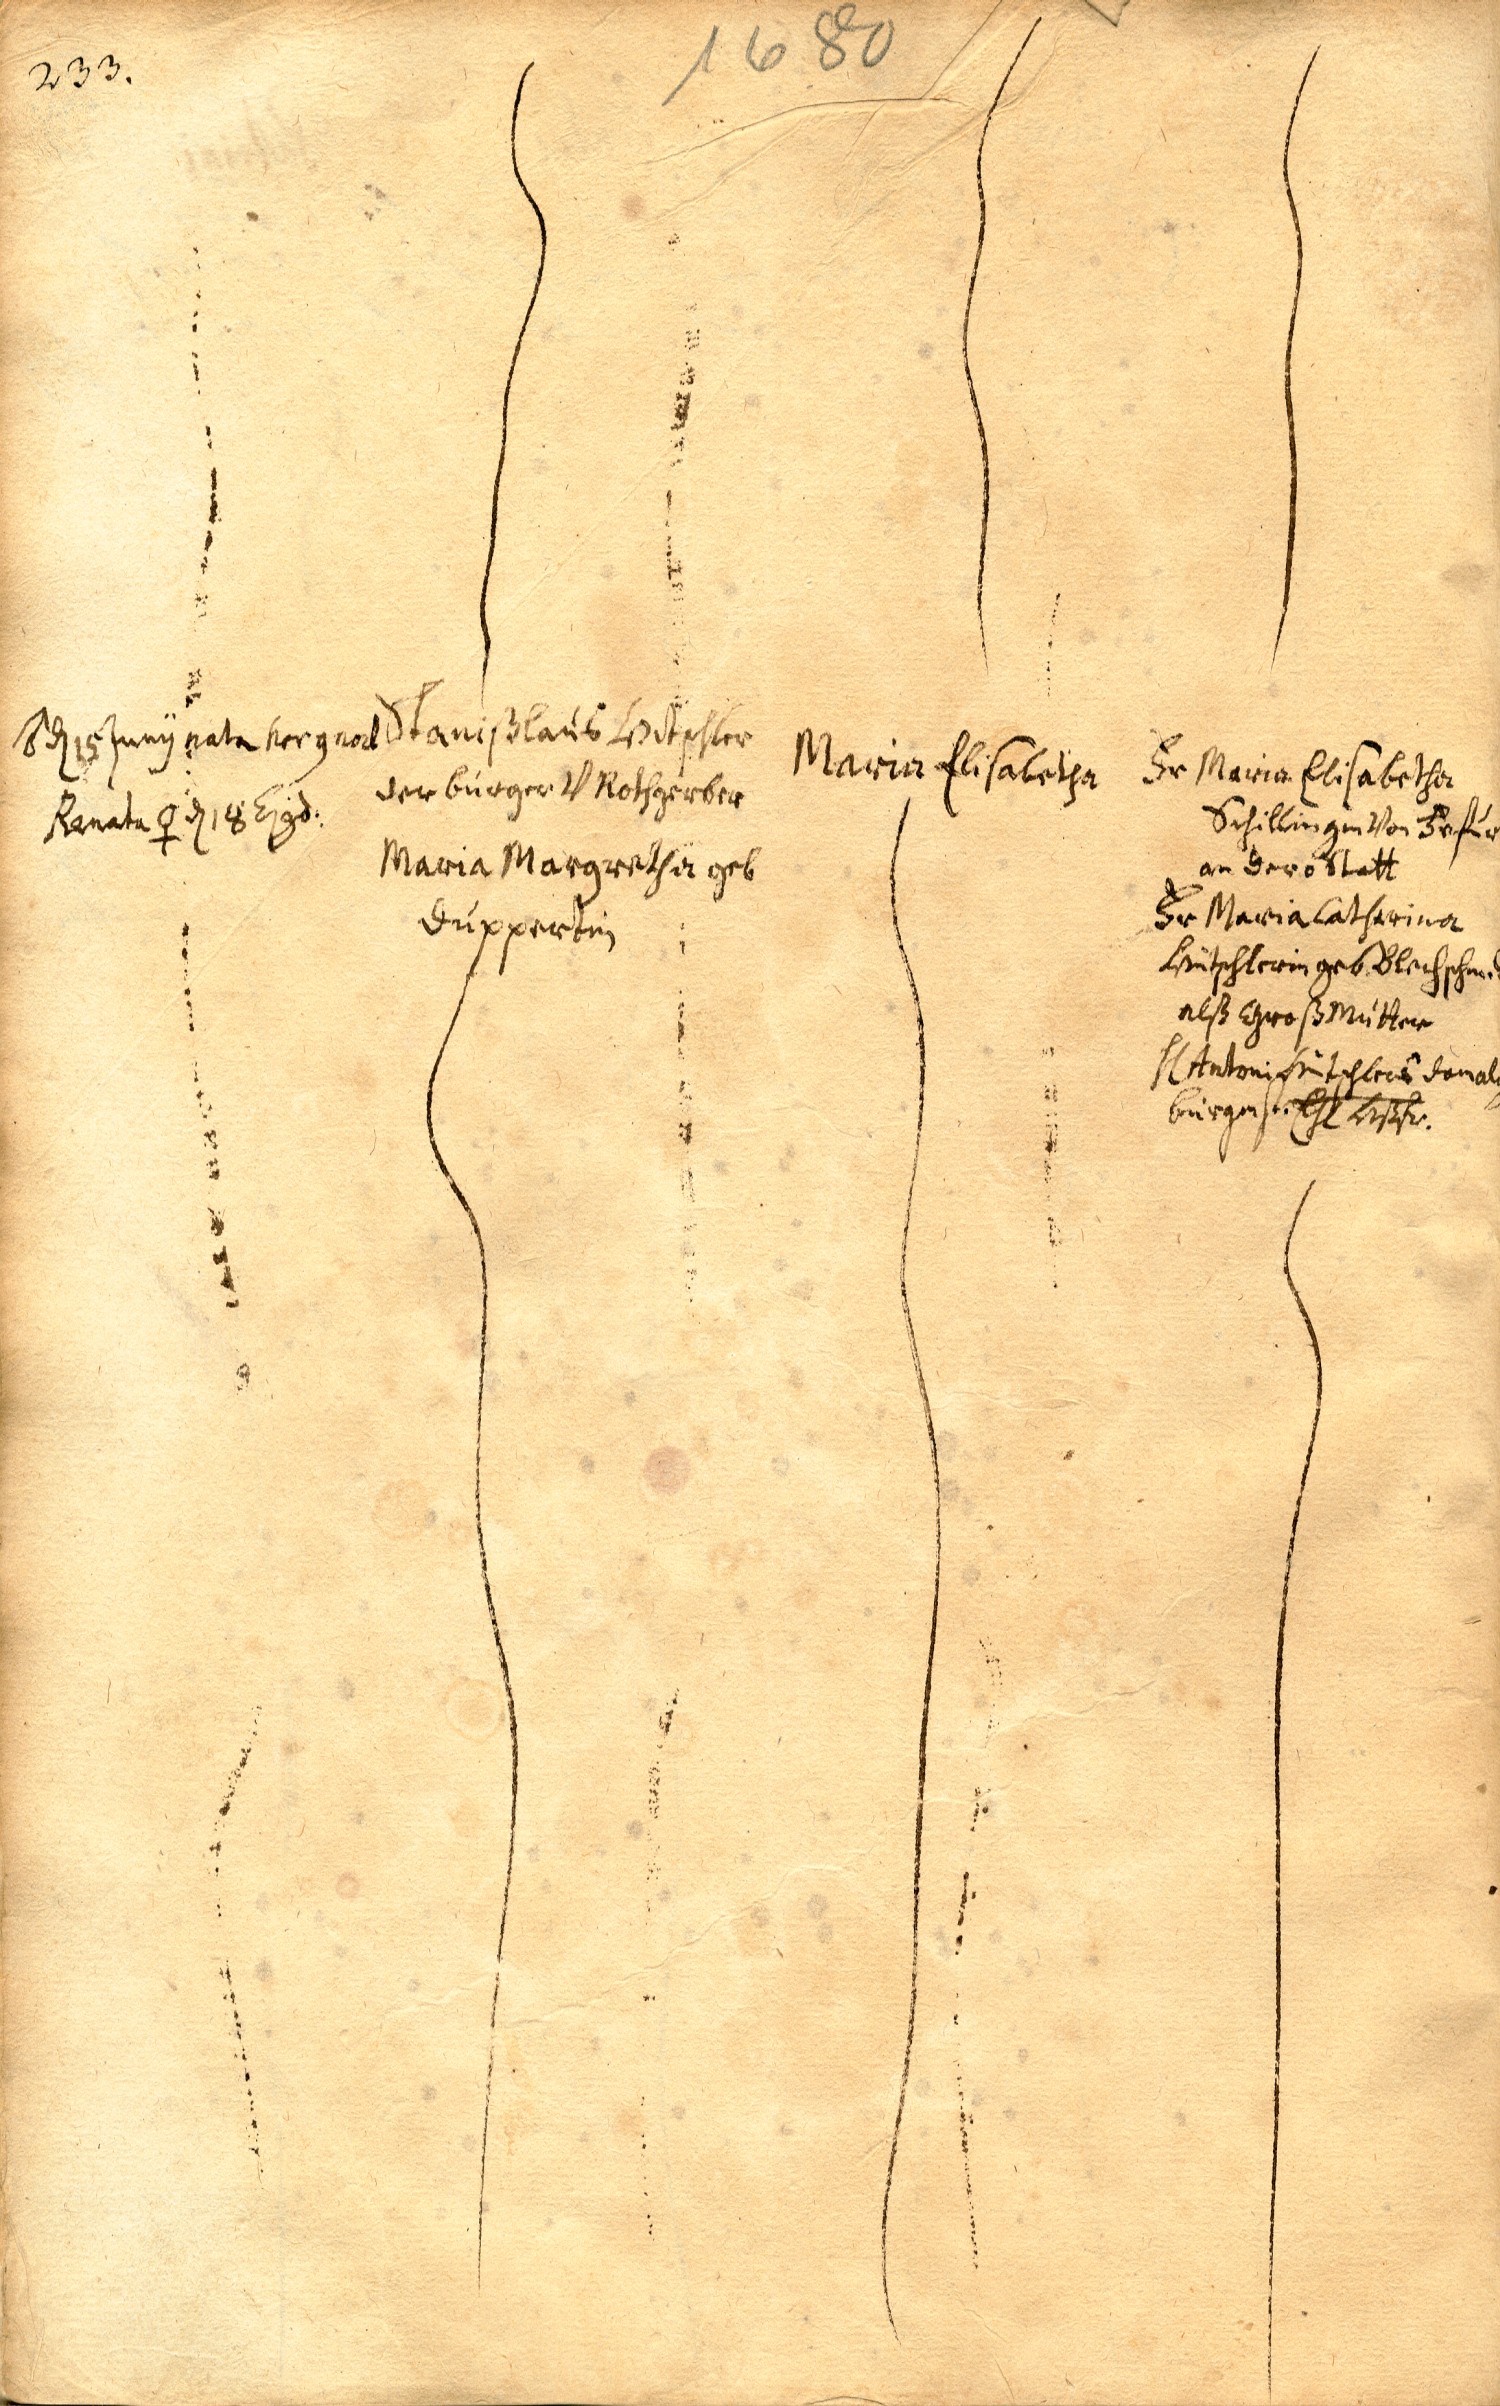 233.
1680
15 Junij nata her g nod
Renata ♀ 18 Ejsd:
Stanißlaus Lütschler
der bürger V Rothgerber
Maria Margretha geb
Duppertin
Maria Elisabetha
Fr Maria Elisabetha
Schillingin Von Erfur
an dero Statt
Fr Maria Catharina
Lütschlerin geb. Blechschmid
alß Groß Mutter
H Antoni Lütschlers damal